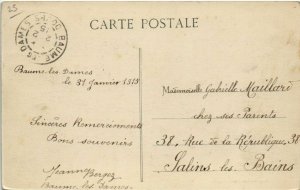 25
CARTE POSTALE
BAUME-LES-DAMES
Baume-les-Dames
le 31 Janvier 1915
Sincères Remerciements
Bons souvenirs
Jeanne
Baume les Dames
Mademoiselle Gabrielle Maillard
chez ses Parents
38, Rue de la République, 38
Salins les Bains